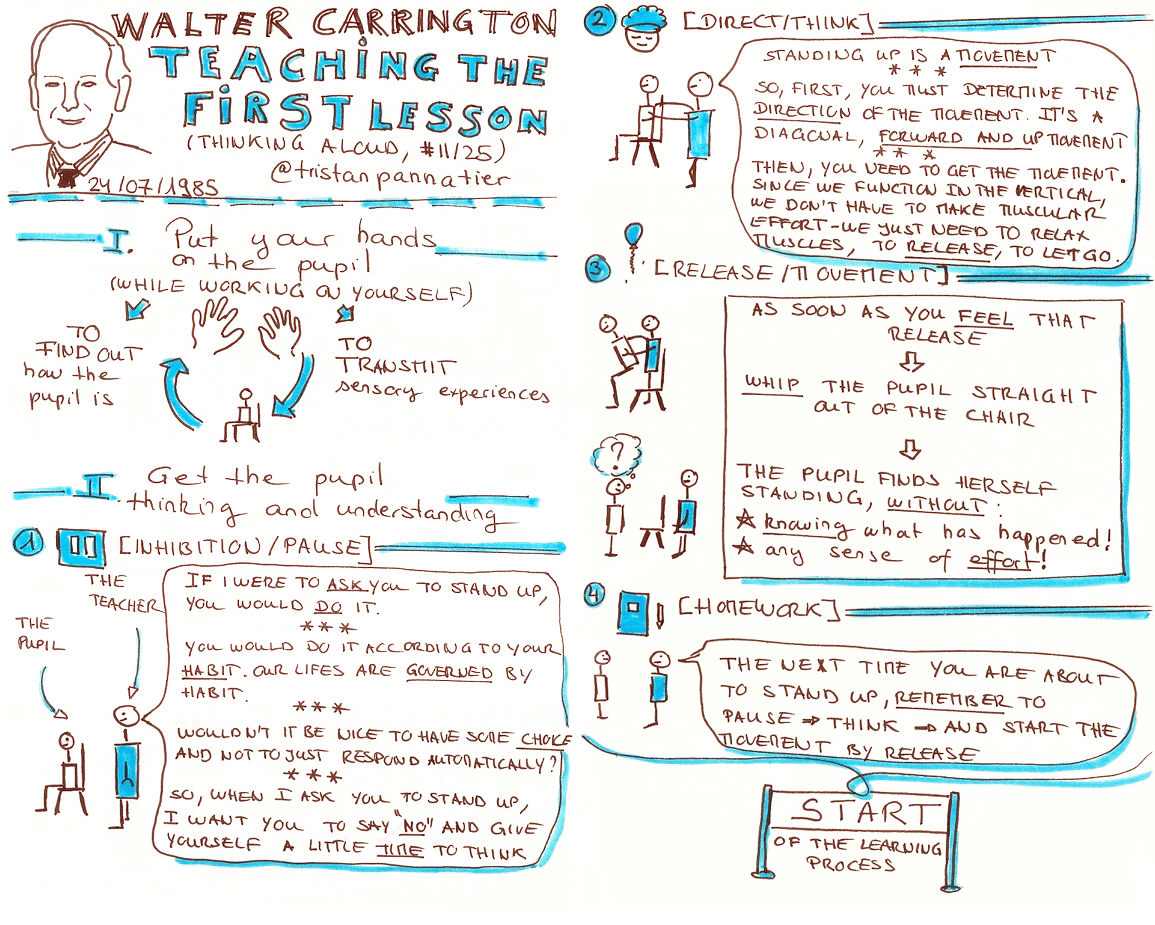 WALTER CARRINGTON
TEACHING THE
FIRST LESSON
(THINKING ALOUD, #11/25)
@tristanpannatier
24/07/1985
I. Put your hands
on the pupil
(WHILE WORKING ON YOURSELF)
TO
FIND OUT
how the
pupil is
TO
TRANSMIT
sensory experiences
II. Get the pupil
thinking and understanding
1 [INHIBITION/PAUSE]
THE
TEACHER
THE
PUPIL
IF I WERE TO ASK YOU TO STAND UP,
YOU WOULD DO IT.
***
YOU WOULD DO IT ACCORDING TO YOUR
HABIT. OUR LIFES ARE GOVERNED BY
HABIT.
***
WOULDN'T IT BE NICE TO HAVE SOME CHOICE
AND NOT TO JUST RESPOND AUTOMATICALLY?
***
SO, WHEN I ASK YOU TO STAND UP,
I WANT YOU TO SAY "NO" AND GIVE
YOURSELF A LITTLE TIME TO THINK
2 [DIRECT/THINK]
STANDING UP IS A MOVEMENT
***
SO, FIRST, YOU MUST DETERMINE THE
DIRECTION OF THE MOVEMENT. IT'S A
DIAGONAL, FORWARD AND UP MOVEMENT
***
THEN, YOU NEED TO GET THE MOVEMENT.
SINCE WE FUNCTION IN THE VERTICAL,
WE DON'T HAVE TO MAKE MUSCULAR
EFFORT-WE JUST NEED TO RELAX
MUSCLES, TO RELEASE, TO LET GO.
3 [RELEASE/MOVEMENT]
AS SOON AS YOU FEEL THAT
RELEASE
⇩
WHIP THE PUPIL STRAIGHT
OUT OF THE CHAIR
⇩
THE PUPIL FINDS HERSELF
STANDING, WITHOUT:
☆ knowing what has happened!
☆ any sense of effort!
?
4 [HOMEWORK]
THE NEXT TIME YOU ARE ABOUT
TO STAND UP, REMEMBER TO
PAUSE ⇒ THINK ⇒ AND START THE
MOVEMENT BY RELEASE
START
OF THE LEARNING
PROCESS